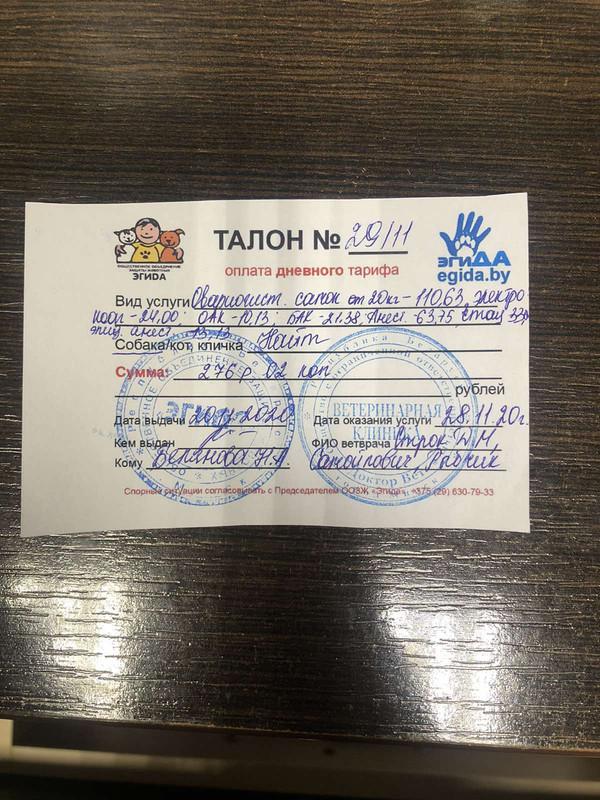 ТАЛОН № 29/11
ОБЩЕСТВЕННОЕ ОБЪЕДИНЕНИЕ
ЗАЩИТЫ ЖИВОТНЫХ
ЭГИДА
эгиДА
egida.by
оплата дневного тарифа
Вид услуги Овариогист. самок от 20кг - 110.63, электро
коаг - 24,00; ОАК - 10,13; БАК - 21.38 Анест. - 63,75 Стац
эпид. анест.
Собака/кот, кличка Найт
Сумма: 276 р. 02 коп
рублей
Дата выдачи Дата оказания услуги 28.11.20г.
Кем выдан ФИО ветврача
Кому Самойлович
Спорные ситуации согласовывать с Председателем ООЗЖ «Эгида», +375 (29) 630-79-33
ЭГИДА
ВЕТЕРИНАРНАЯ
КЛИНИКА